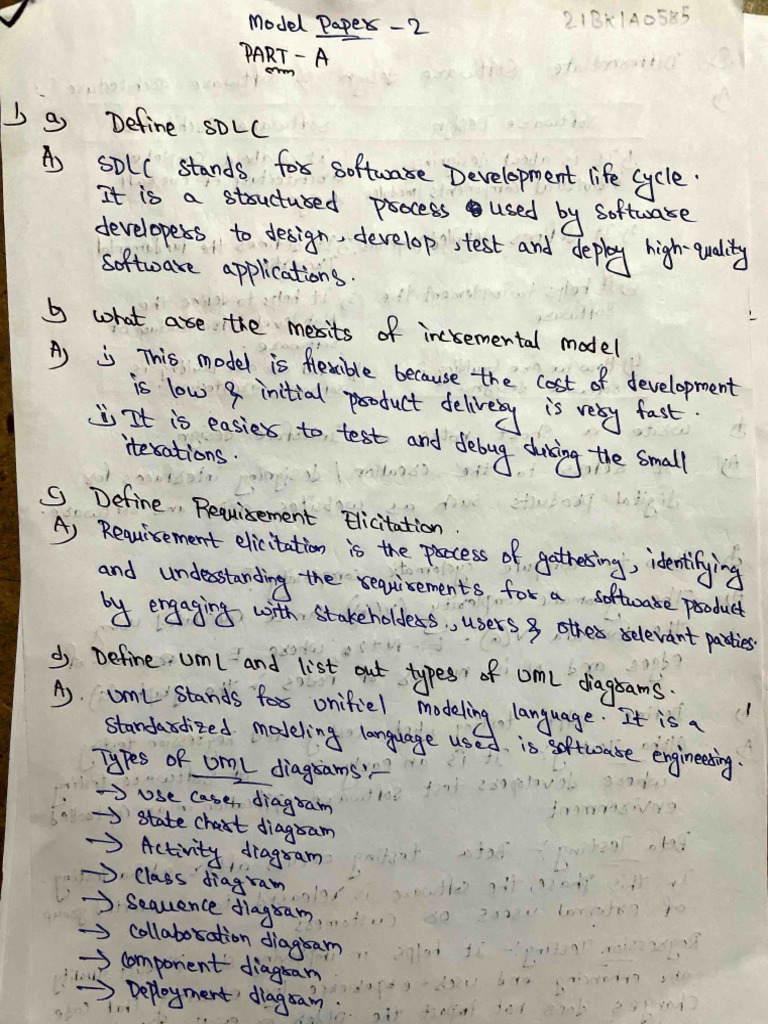 Model Paper - 2
21BK1A0585
PART - A
1) a) Define SDLC
A) SDLC stands for Software Development life cycle.
It is a structured process used by software
developers to design, develop, test and deploy high-quality
software applications.
b) what are the merits of incremental model
A) i) This model is flexible because the cost of development
is low & initial product delivery is very fast.
ii) It is easier to test and debug during the small
iterations.
c) Define Requirement Elicitation.
A) Requirement elicitation is the process of gathering, identifying
and understanding the requirements for a software product
by engaging with stakeholders, users & other relevant parties.
d) Define UML and list out types of UML diagrams.
A) UML stands for unifiel modeling language. It is a
standardized modeling language used is software engineering.
Types of UML diagrams:-
→ use case diagram
→ state chart diagram
→ Activity diagram
→ class diagram
→ sequence diagram
→ collaboration diagram
→ component diagram
→ Deployment diagram.